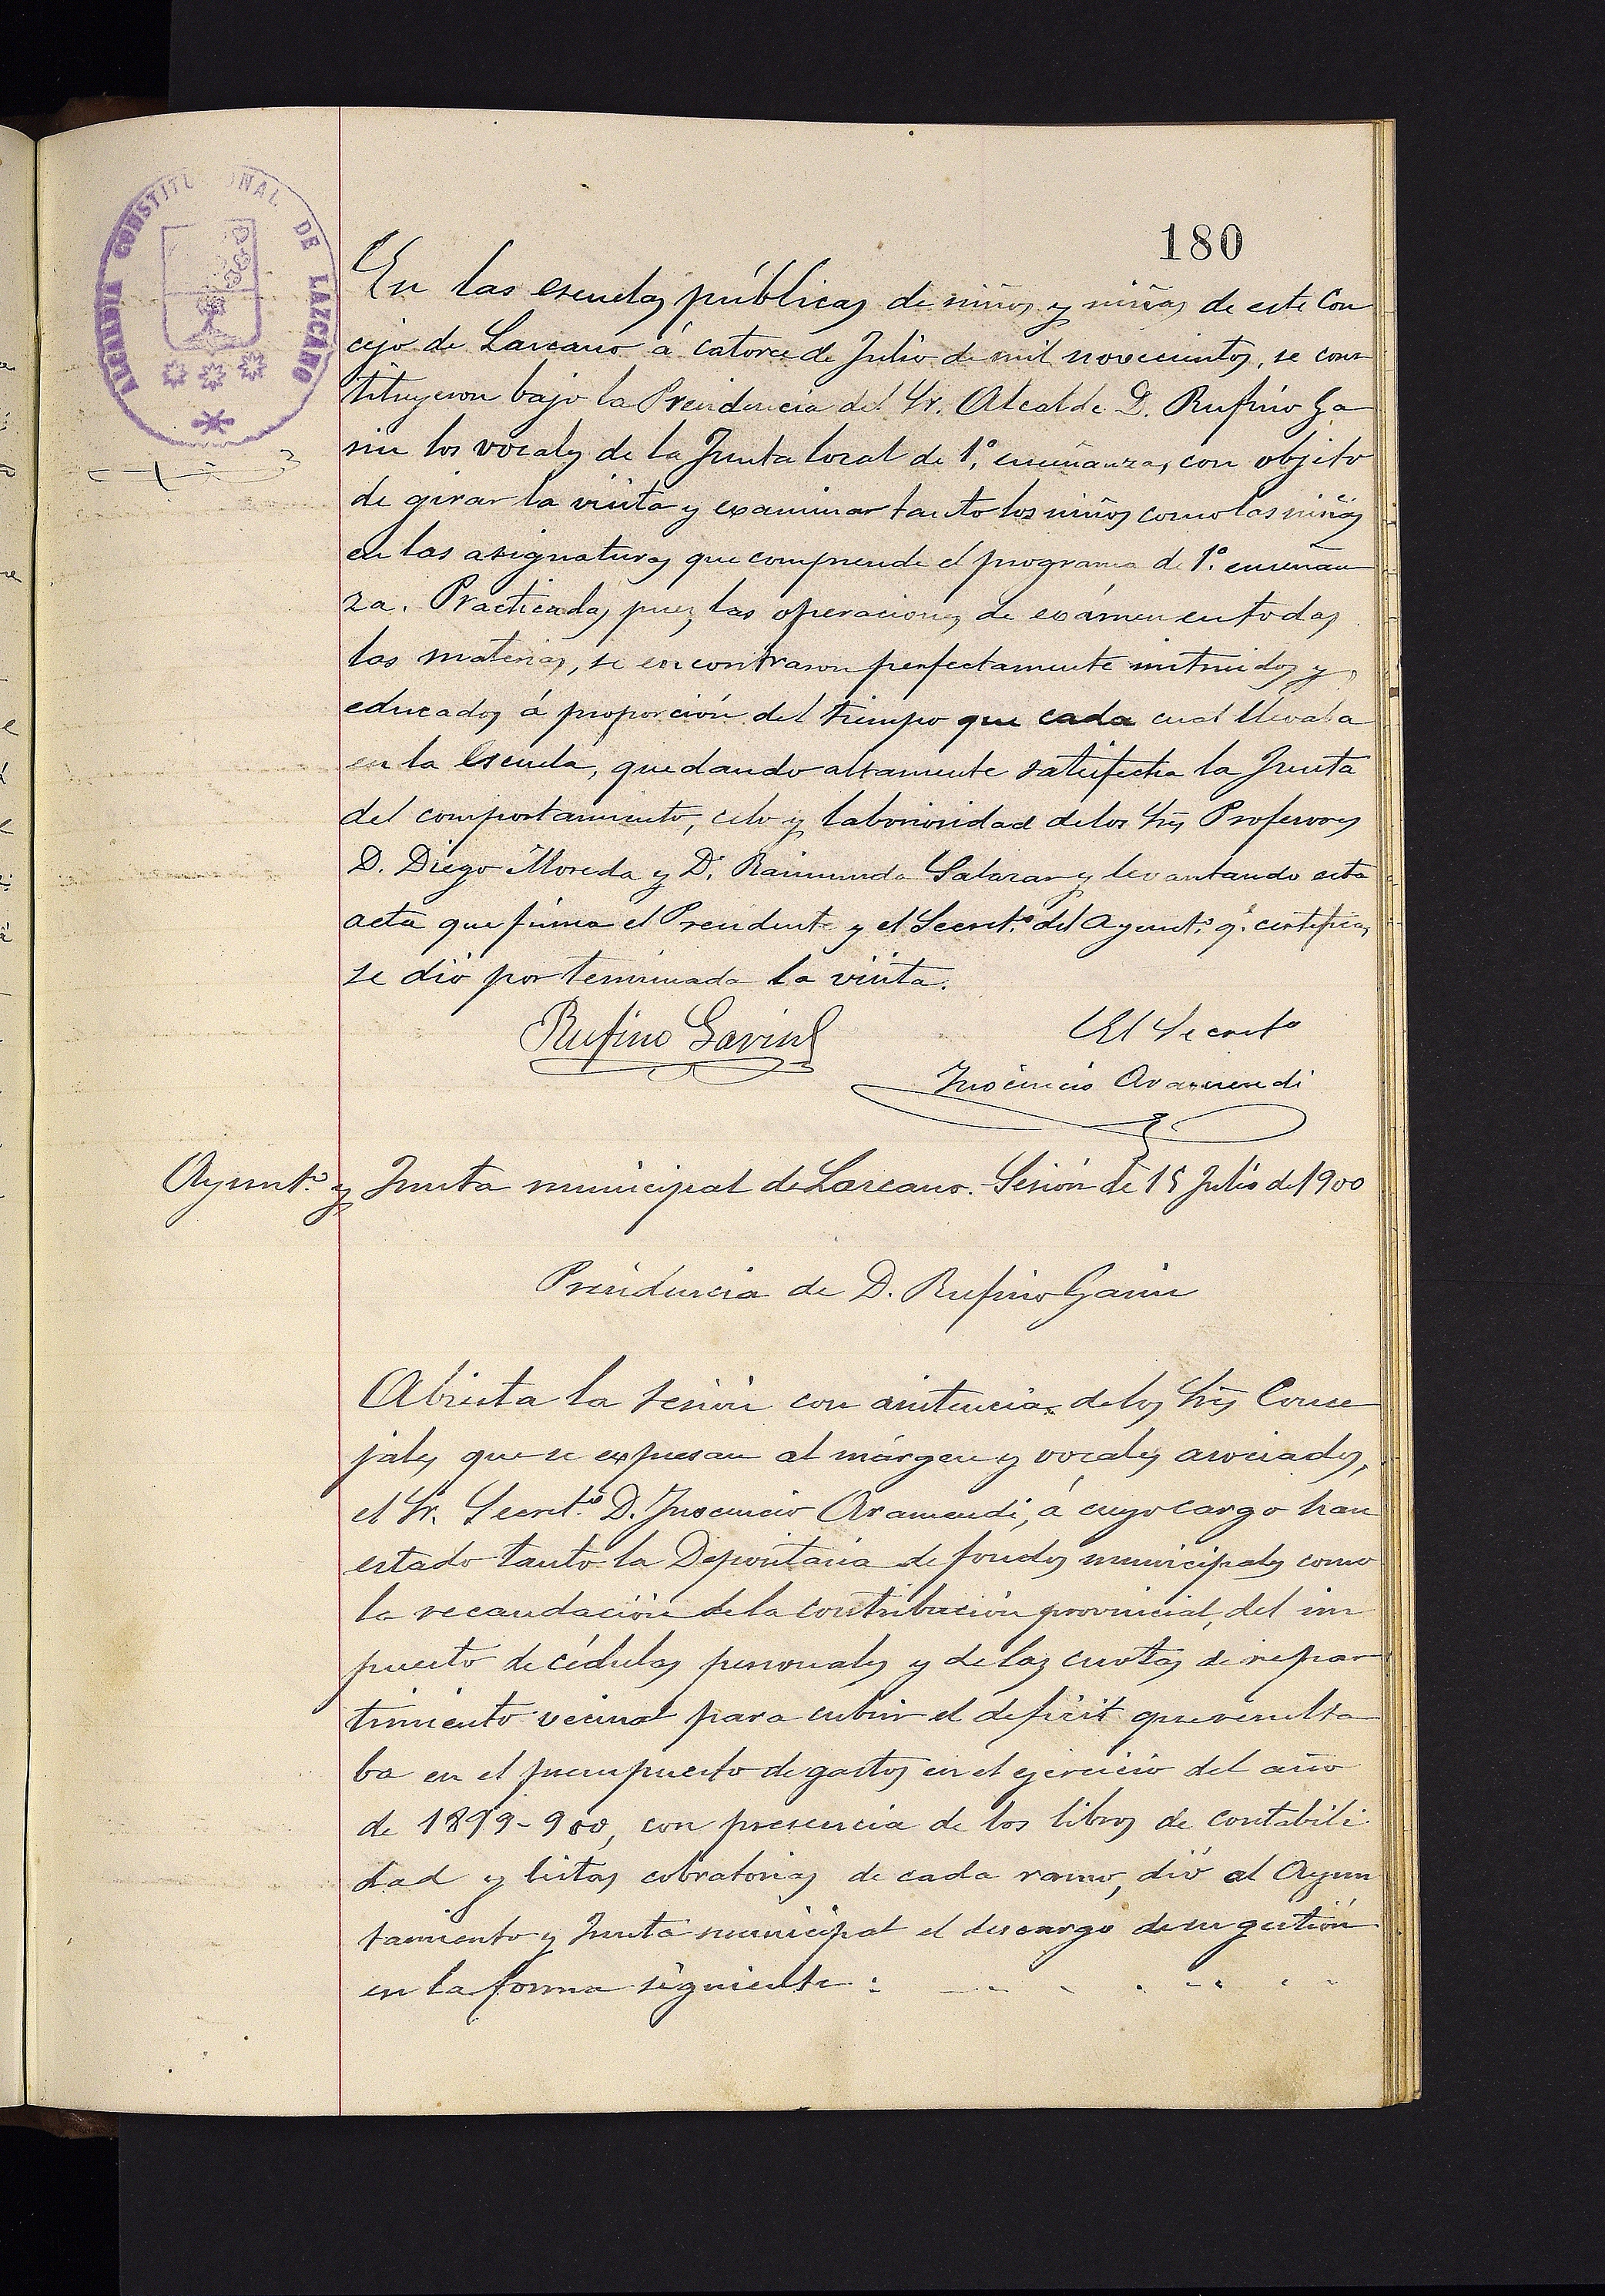 180
ALCALDIA CONSTITUCIONAL DE LAZCANO
En las escuelas públicas de niños y niñas de este Con
cejo de Lazcano á catorce de Julio de mil novecientos, se cons
tituyeron bajo la Presidencia del Sr. Alcalde D. Rufino Ga
rin los vocales de la Junta local de 1.ª enseñanza, con objeto
de girar la visita y examinar tanto los niños como las niñas
en las asignaturas que comprende el programa de 1.ª enseñan
za. Practicadas pues, las operaciones de exámen en todas
las materias, se encontraron perfectamente instruidos y
educados á proporción del tiempo que cada cual llevaba
en la Escuela, quedando altamente satisfecha la Junta
del comportamiento, celo y laboriosidad de los Srs Profesores
D. Diego Moreda y D.ª Raimunda Salazar y levantando esta
acta que firma el Presidente y el Secret.º del Ayunt.º q.e certifica,
se dió por terminada la visita.
Rufino Garin
El Secret.º
Inocencio Aramendi
Ayunt.º y Junta municipal de Lazcano. Sesión de 15 Julio de 1900
Presidencia de D. Rufino Garin
Abierta la sesión con asistencia de los Srs Conce
jales que se expresan al márgen y vocales asociados,
el Sr. Secret.º D. Inocencio Aramendi, á cuyo cargo han
estado tanto la Depositaria de fondos municipales como
la recaudación de la contribución provincial, del im
puesto de cédulas personales y de las cuotas de repar
timiento vecinal para cubrir el deficit que resulta
ba en el presupuesto de gastos en el ejercicio del año
de 1899-900, con presencia de los libros de contabili
dad y listas cobratorias de cada ramo, dió al Ayun
tamiento y Junta municipal el descargo de su gestión
en la forma siguiente: